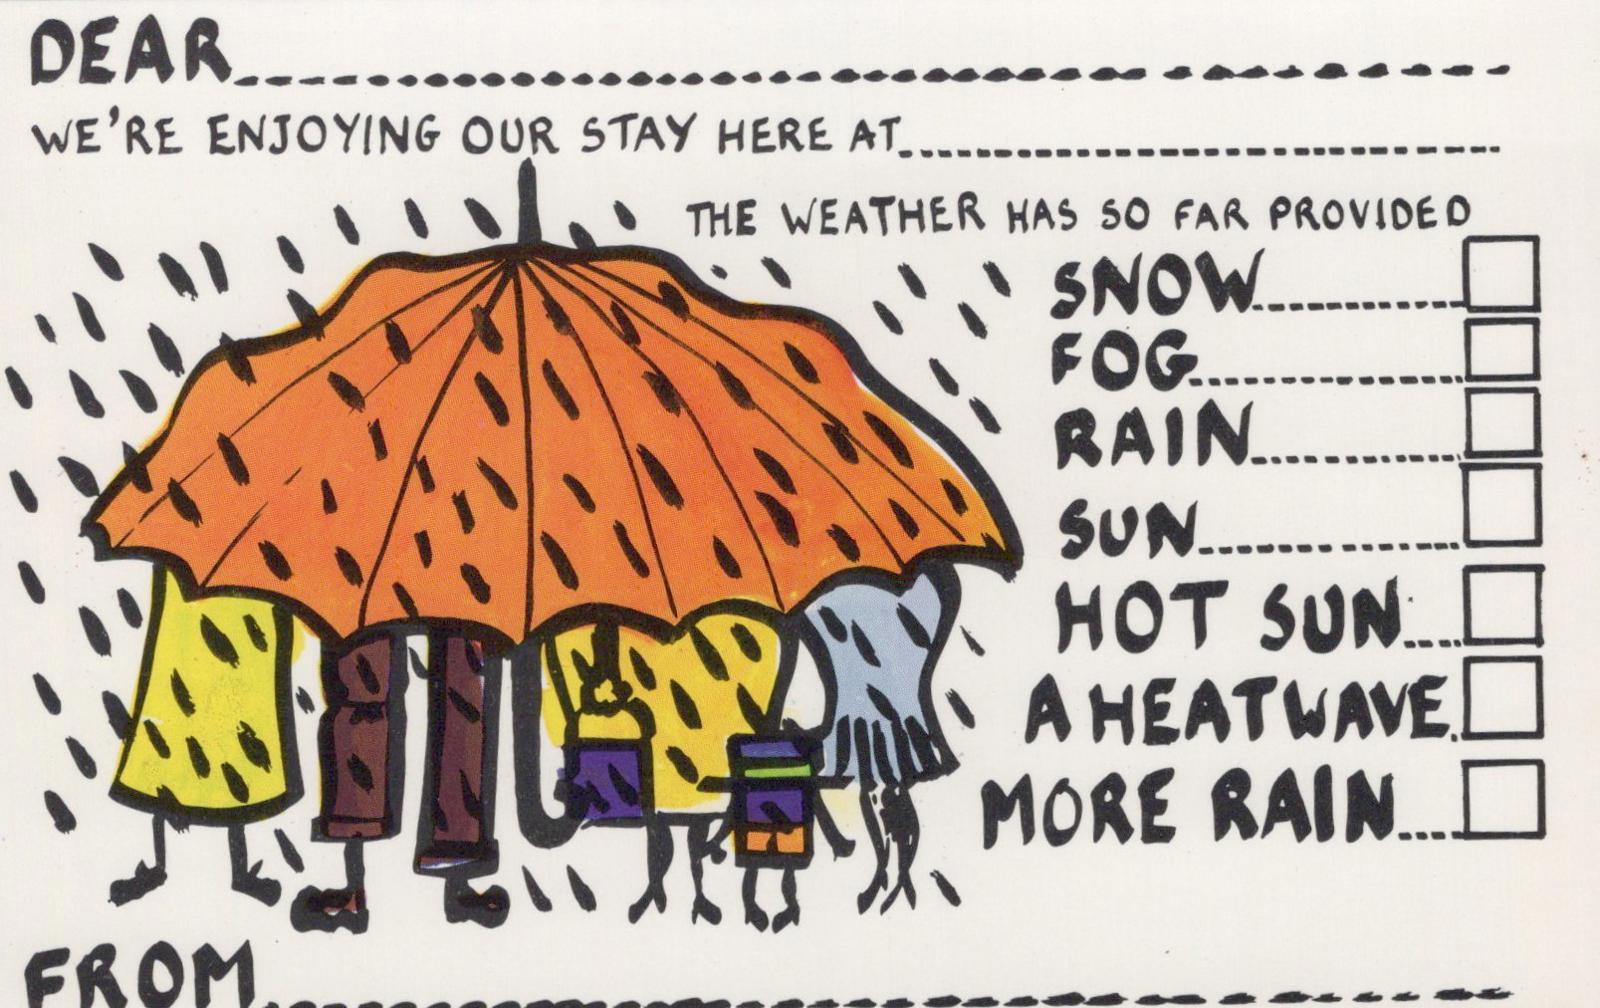 DEAR
WE'RE ENJOYING OUR STAY HERE AT
THE WEATHER HAS SO FAR PROVIDED
SNOW
FOG
RAIN
SUN
HOT SUN
A HEATWAVE
MORE RAIN
FROM